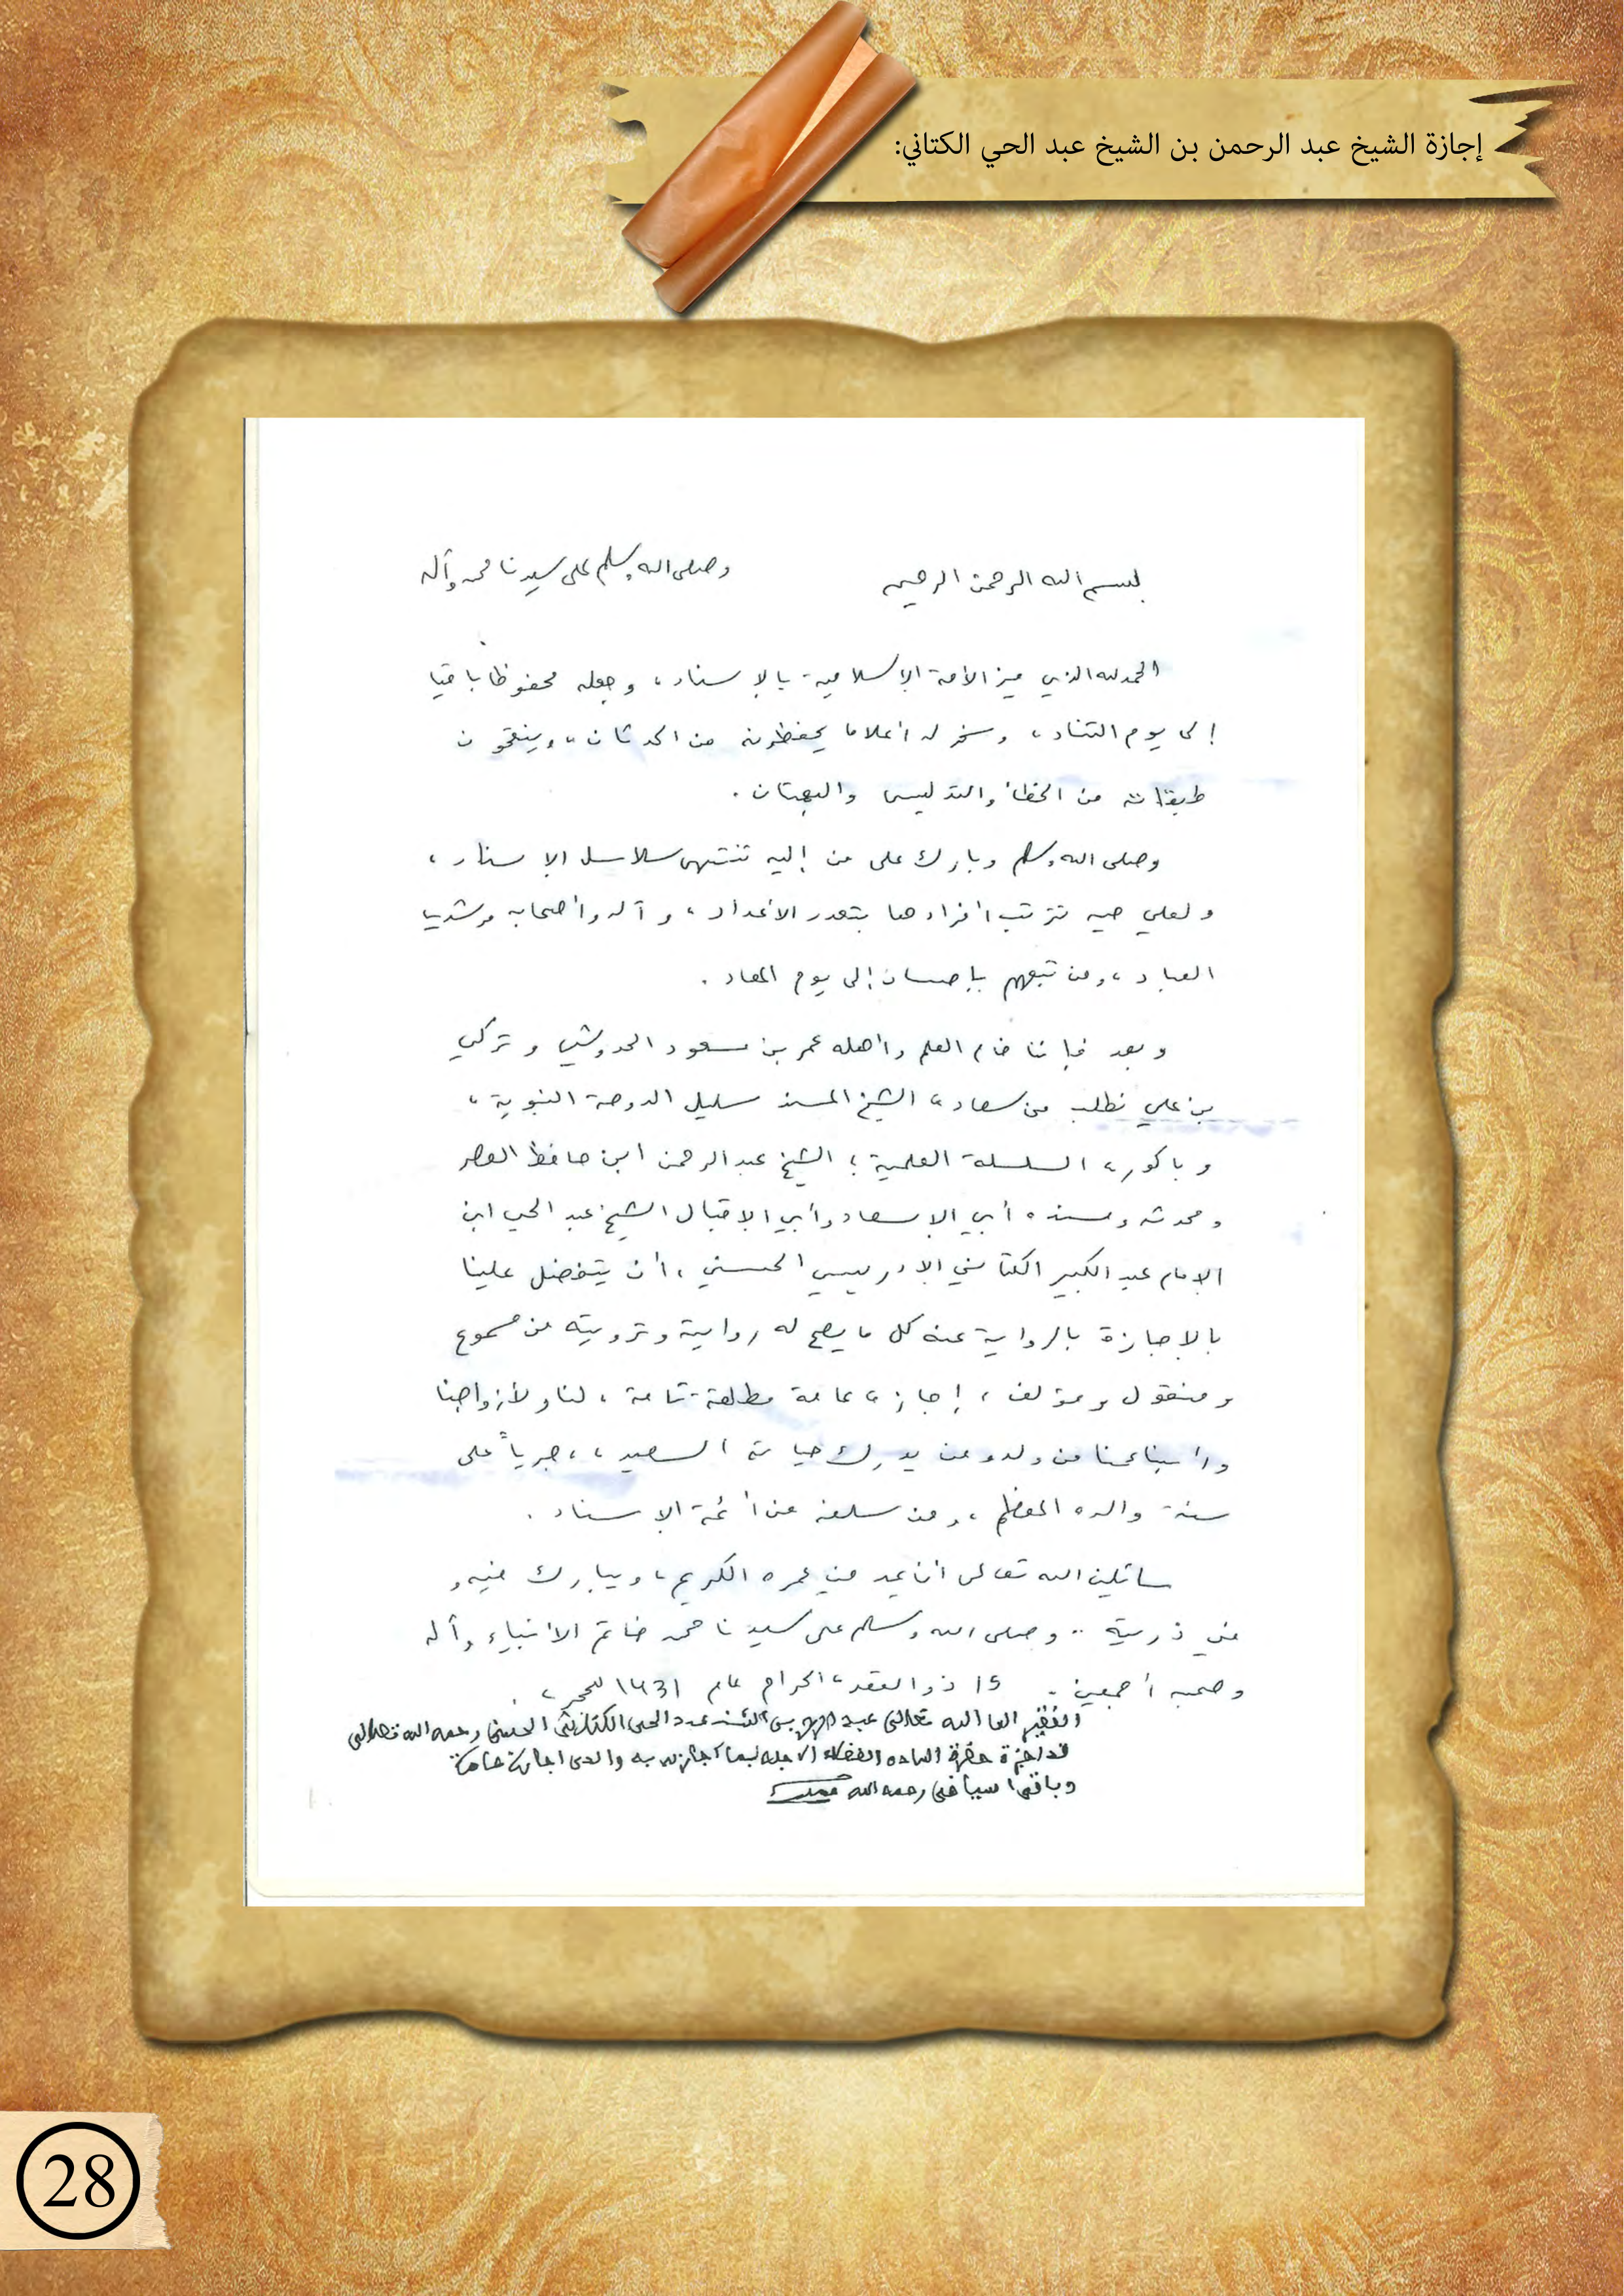 إجازة الشيخ عبد الرحمن بن الشيخ عبد الحي الكتاني:
بسم الله الرحمن الرحيم
وصلى الله وسلم على سيدنا محمد وآله
الحمد لله الذي ميز الأمة الإسلامية بالإسناد، وجعله محفوظا باقيا
إلى يوم التناد، وسخر له أعلاما يحفظونه من الحدثان، وينقحون
طبقاته من الخطأ والتدليس والبهتان.
وصلى الله وسلم وبارك على من إليه تنتهي سلاسل الإسناد،
ولعلي تترتب أفرادها بتعدد الأعداد، وآله وأصحابه مرشديا
العباد، ومن تبعهم بإحسان إلى يوم المعاد.
وبعد فإننا خدام العلم وأهله عمر بن مسعود الحدوشي وتركي
بن علي نطلب من سعادة الشيخ المسند سليل الدوحة النبوية،
وباكورة السلسلة العلمية؛ الشيخ عبد الرحمن ابن حافظ العصر
ومحدثه ومسنده أبي الإسعاد وأبي الإقبال الشيخ عبد الحي ابن
الإمام عبد الكبير الكتاني الإدريسي الحسني، أن يتفضل علينا
بالإجازة بالرواية عنه كل ما يصح له رواية وترويته من مسموع
ومنقول ومؤلف، إجازة عامة مطلقة تامة، لنا ولأزواجنا
من ولد ومن يدرك حياته السعيدة، جرياً على
سنة والده المعظم، ومن سلفه من أئمة الإسناد.
سائلين الله تعالى أن يمد في عمره الكريم، ويبارك فيه و
في ذريته .. وصلى الله وسلم على سيدنا محمد خاتم الأنبياء وآله
وصحبه أجمعين. 15 ذو القعدة الحرام عام 1431 للهجرة.
الفقير إلى الله تعالى عبد الرحمن بن الشيخ عبد الحي الكتاني الحسني رحمه الله تعالى
قد اجزة حضرة الساده الفضلاء الاجله بما اجازني به والدي اجازة عامة
وباقي اشياخي رحمه الله
28